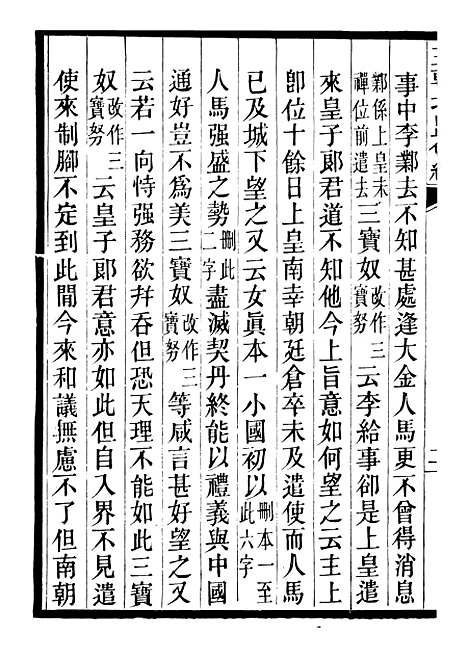 事中李鄴去不知甚處逢大金人馬更不曾得消息
鄴係上皇未禪位前遣去三寶奴改作三寶努云李給事卻是上皇遣
來皇子郎君道不知他今上旨意如何望之云主上
卽位十餘日上皇南幸朝廷倉卒未及遣使而人馬
已及城下望之又云女眞本一小國初以刪本一至此六字
人馬强盛之勢刪此二字盡滅契丹終能以禮義與中國
通好豈不爲美三寶奴改作三寶努等咸言甚好望之又
云若一向恃强務欲幷吞但恐天理不能如此三寶
奴改作三寶努云皇子郎君意亦如此但自入界不見遣
使來制腳不定到此間今來和議無慮不了但南朝